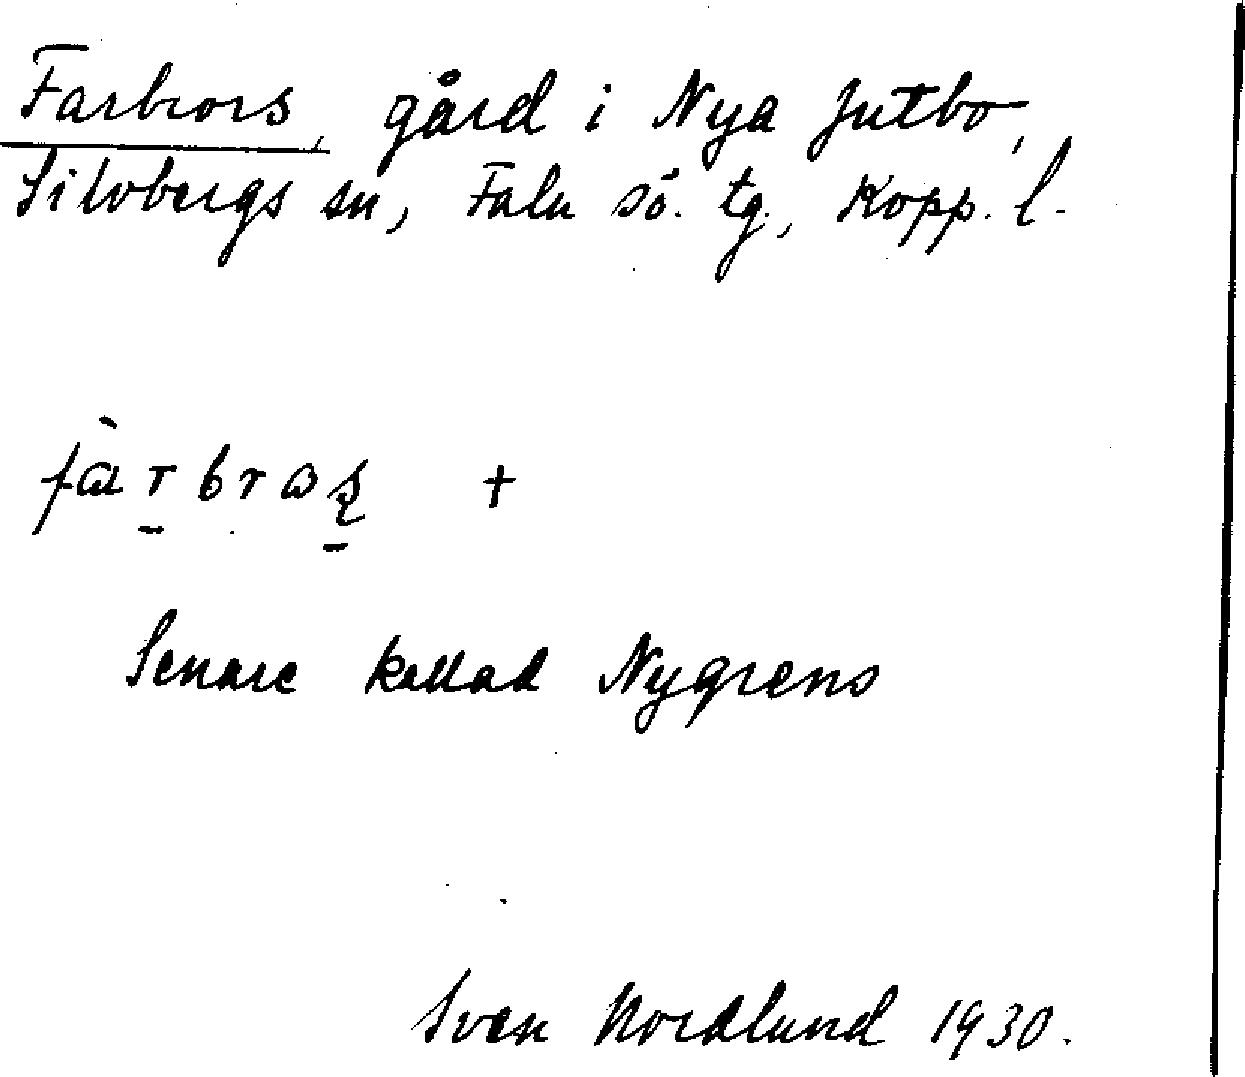 Farbrors, gård i Nya Jutbo,
Silvbergs sn, Falu sö. tg., Kopp. l.
fàrbros +
Senare kallad Nygrens
Sven Nordlund 1930.